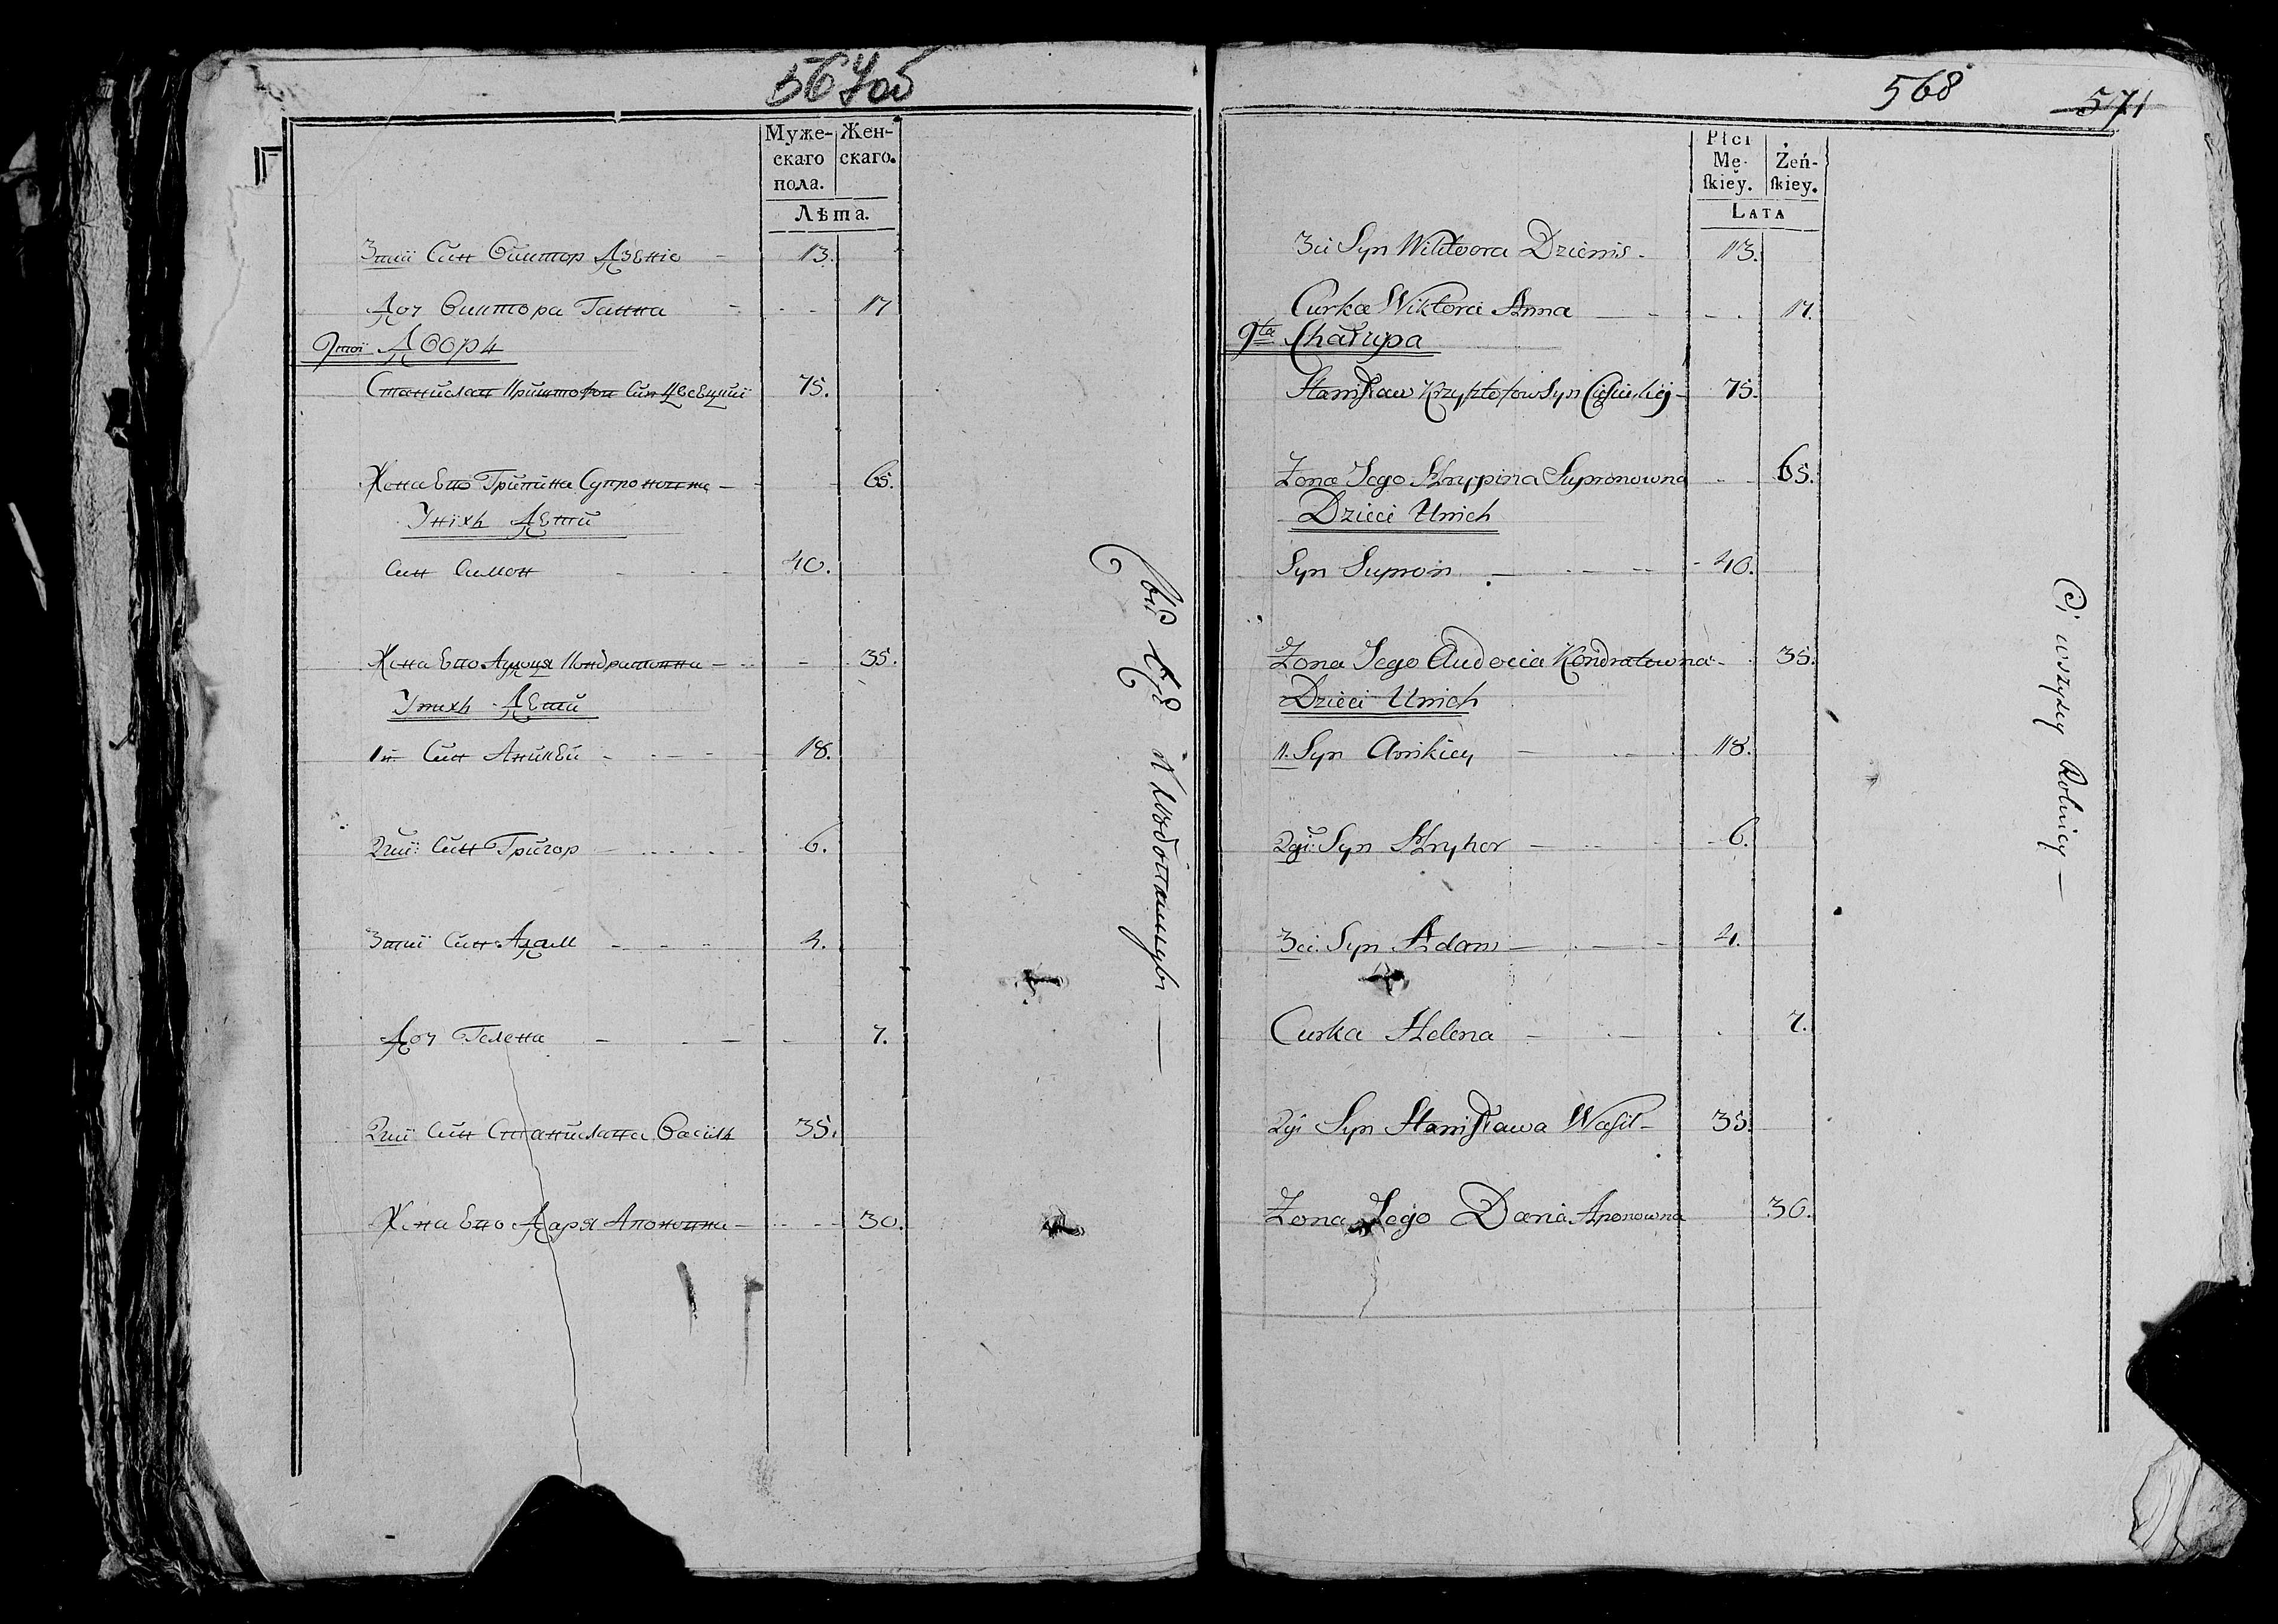 567об
Муже-
скаго
пола.
Жен-
скаго.
Лѣта.
3тий Син Виктор Дзѣніс - 13.
Доч Виктора Ганна - 17
9той Дворъ
Станислав Криштофов Син 75.
Жена Его Грипина Супроновна - 65.
У них Дѣти
Син Симон - 40.
Жена Его Авдоця Кондратовна - 35.
У них Дѣти
1й Син Аникѣй - 18.
2гий Син Григор - 6.
3тий Син Адам - 4.
Доч Гелена - 7.
2гий Син Станислава Василь 35.
Жена Его Даря Апоновна - 30.
568
571
Płci
Mę-
ſkieÿ.
Żeń-
ſkiey.
LATA
3ci Syn Wiktora Dzienis - 13.
Curka Wiktora Anna - 17.
9ta Chałupa
Stanisław Krzysztofow Syn 75.
Żona Jego Hrypina Supronowna - 65.
Dzieci Unich
Syn Supron - 40.
Żona Jego Audocia Kondratowna - 35.
Dzieci Unich
1. Syn Anikiey - 18.
2gi Syn Hryhor - 6.
3ci Syn Adam - 4.
Curka Helena - 7.
2gi Syn Stanisława Wasil - 35.
Żona Jego Daria Aponowna 30.
Ci wszyscy Rolnicy -